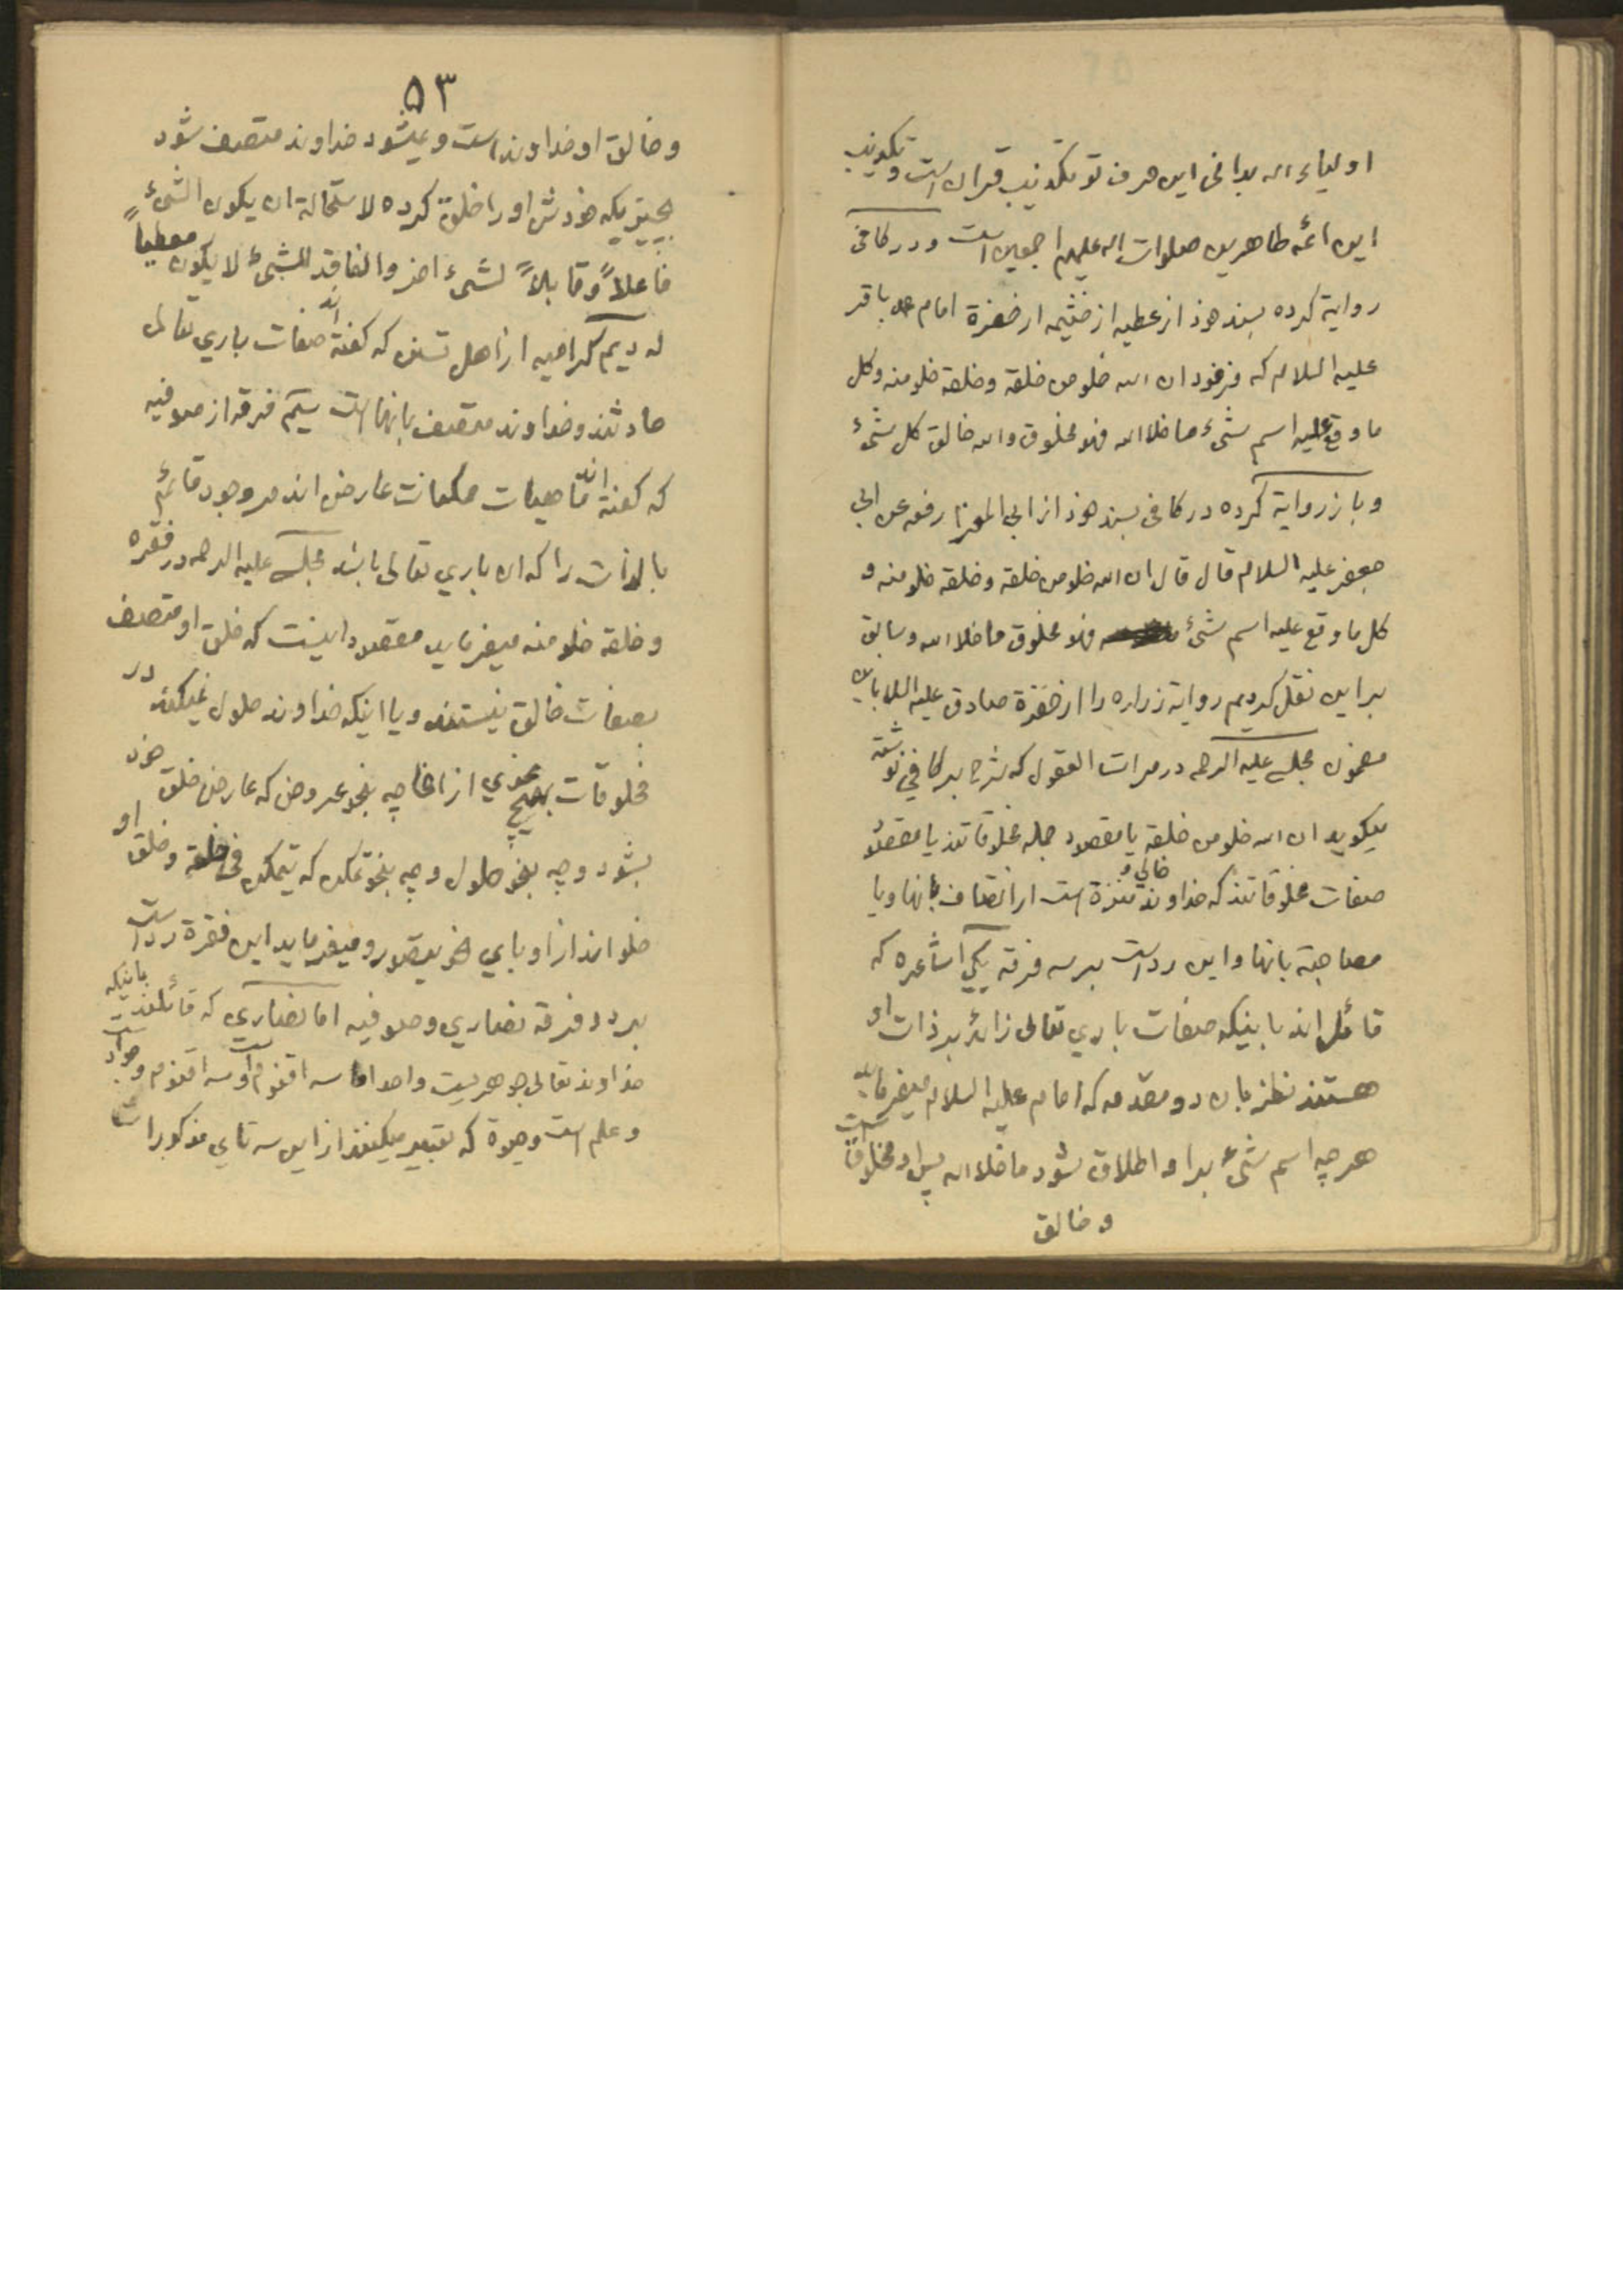 اولیاء اله بدانی این حرف تو تکذیب قران است و تکذیب
این ائمه طاهرین صلوات اله علیهم اجمعین است و در کافی
روایة کرده بسند خود از عطیه از خثیمه از حضرة امام محمد باقر
علیه السلام که فرمود ان الله خلو من خلقه و خلقه خلو منه و کل
ما وقع علیه اسم شیء ما خلا الله فهو مخلوق و الله خالق کل شیء
و باز روایة کرده در کافی بسند خود از ابی المغرا رفعه عن ابی
جعفر علیه السلام قال قال ان الله خلو من خلقه و خلقه خلو منه و
کل ما وقع علیه اسم شیء فهو مخلوق ما خلا الله و سابق
بر این نقل کردیم روایة زراره را از حضرة صادق علیه السلام باین
مضمون مجلسی علیه الرحمه در مرات العقول که شرح بر کافی نوشته
میکوید ان الله خلو من خلقه یا مقصود جمله مخلوقاتند یا مقصود
صفات مخلوقاتند که خداوند خالی و منزه است از اتصاف بانها و یا
مصاحبة بانها و این رد است بر سه فرقه یکی اشاعره که
قائل اند باینکه صفات باری تعالی زائد بر ذات او
هستند نظر بان دو مقدمه که امام علیه السلام میفرماید
هر چه اسم شیء بر او اطلاق شود ما خلا الله پس او مخلوق است
و خالق
۵۳
و خالق او خداوند است و نمیشود خداوند متصف شود
بچیزیکه خودش او را خلق کرده لاستحالة ان یکون الشیء
فاعلاً و قابلاً لشیء اخر و الفاقد للشیء لا یکون معطیاً
له دیم کرامیه از اهل تسنن که کفته اند صفات باری تعالی
حادثند و خداوند متصف بانها است سیم فرقه از صوفیه
که کفته اند ماهیات ممکنات عارض اند مر وجود قائم
بالذات را که ان باری تعالی باشد مجلسی علیه الرحمه در فقره
و خلقه خلو منه میفرماید مقصود اینست که خلق او متصف
بصفات خالق نیستند و یا اینکه خداوند حلول نمیکند در
مخلوقات بهیچ نحوی از انحا چه بنحو عروض که عارض خلق خود
بشود و چه بنحو حلول و چه بنحو تمکن که یتمکن فی خلقه و خلق او
خلو اند از او بای نحو یتصور و میفرماید این فقرة رد است
بر دو فرقه نصاری و صوفیه اما نصاری که قائلند باینکه
خداوند تعالی جوهریست واحد اما سه اقنوم است و سه اقنوم وجود است
و علم است و حیوة که تعبیر میکنند از این سه تای مذکورات